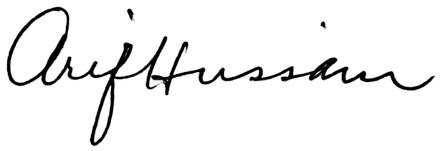 Arif Hussain